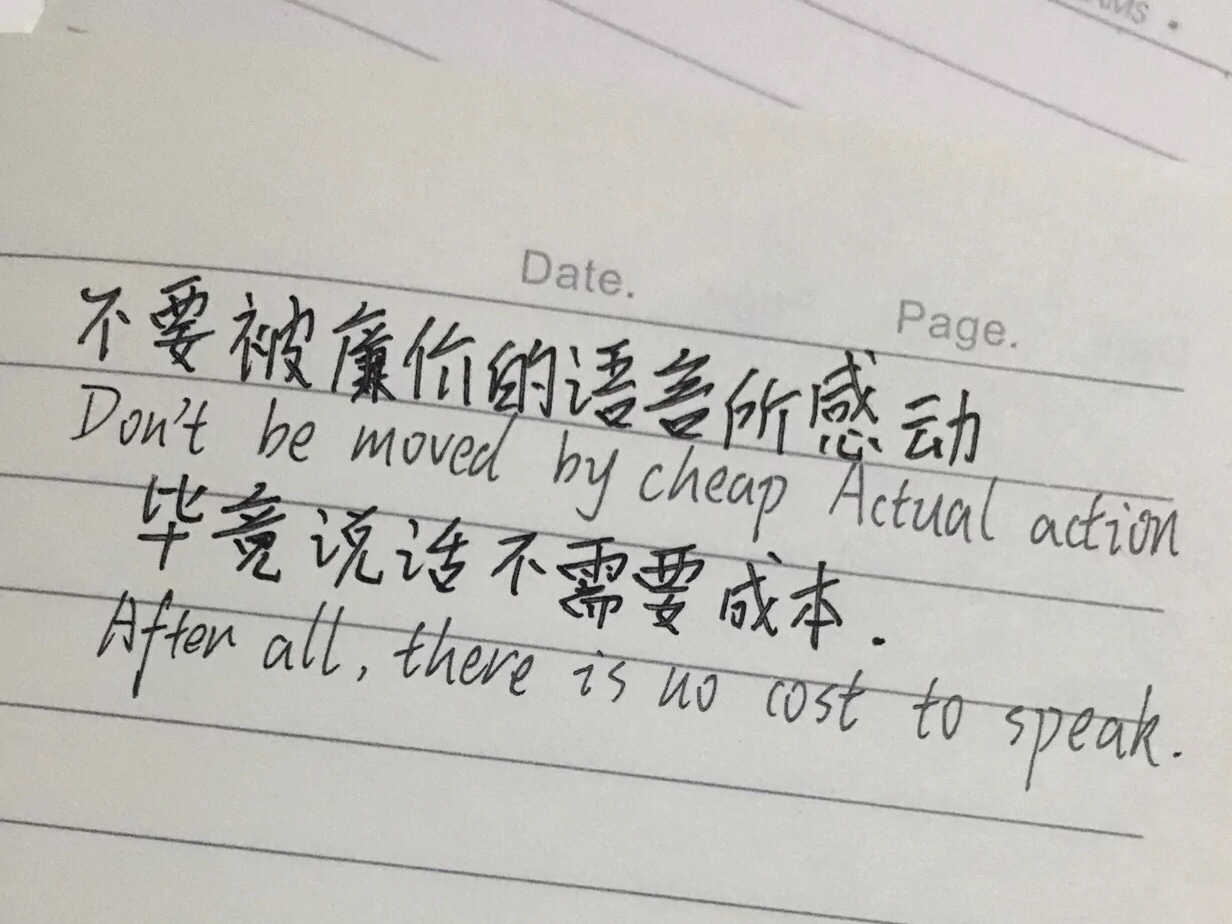 Date.
Page.
不要被廉价的语言所感动
Don't be moved by cheap Actual action
毕竟说话不需要成本.
After all, there is no cost to speak.